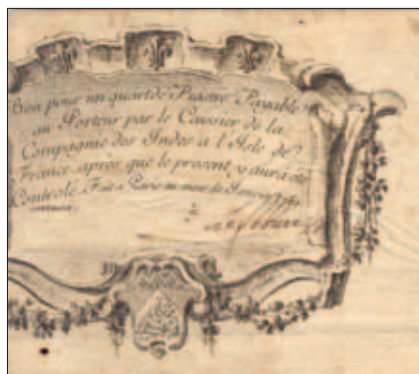 Bon pour un quart de Piastre Payable
au Porteur par le Caissier de la
Compagnie des Indes a l'Isle de
France après que le present y aura été
Controlé. Fait a Paris au mois de